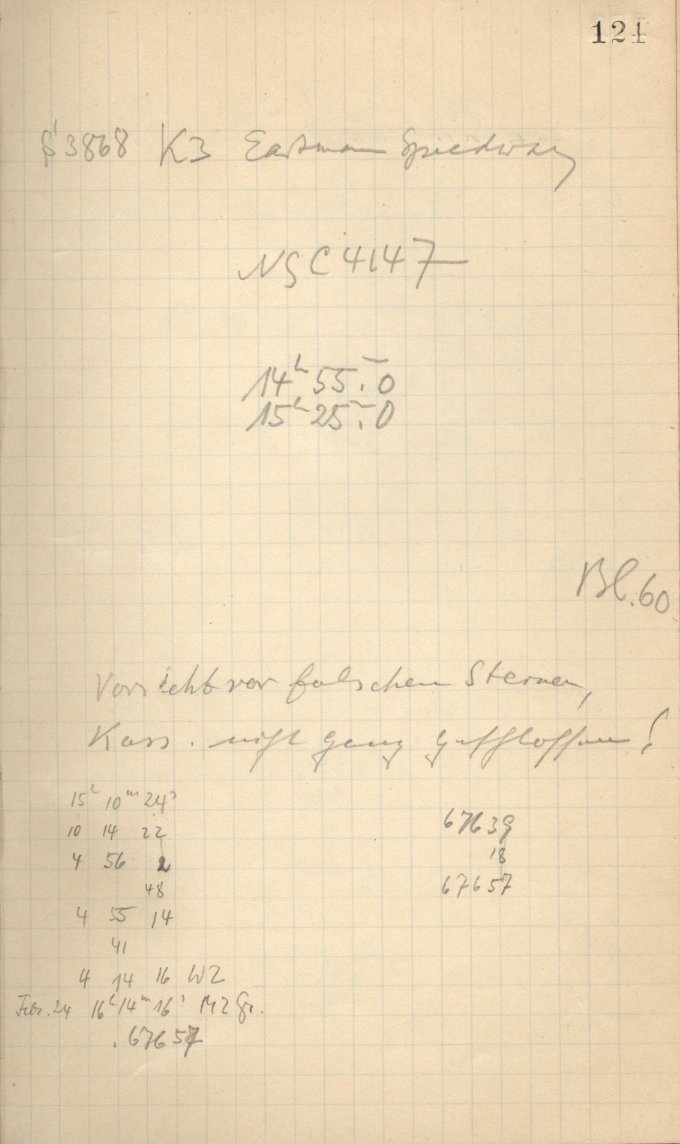 121
S 3868 K3 Eastman Speedway
NGC 4147
14ʰ 55ᵐ.0
15ʰ 25ᵐ.0
Bl. 60
Vorsicht vor falschen Sternen,
Kass. nicht ganz geschlossen!
15ʰ 10ᵐ 24ˢ
10 14 22
67639
4 56 2
18
48
67657
4 55 14
41
4 14 16 WZ
Febr. 24 16ʰ 14ᵐ 16ˢ MZGr.
.67657